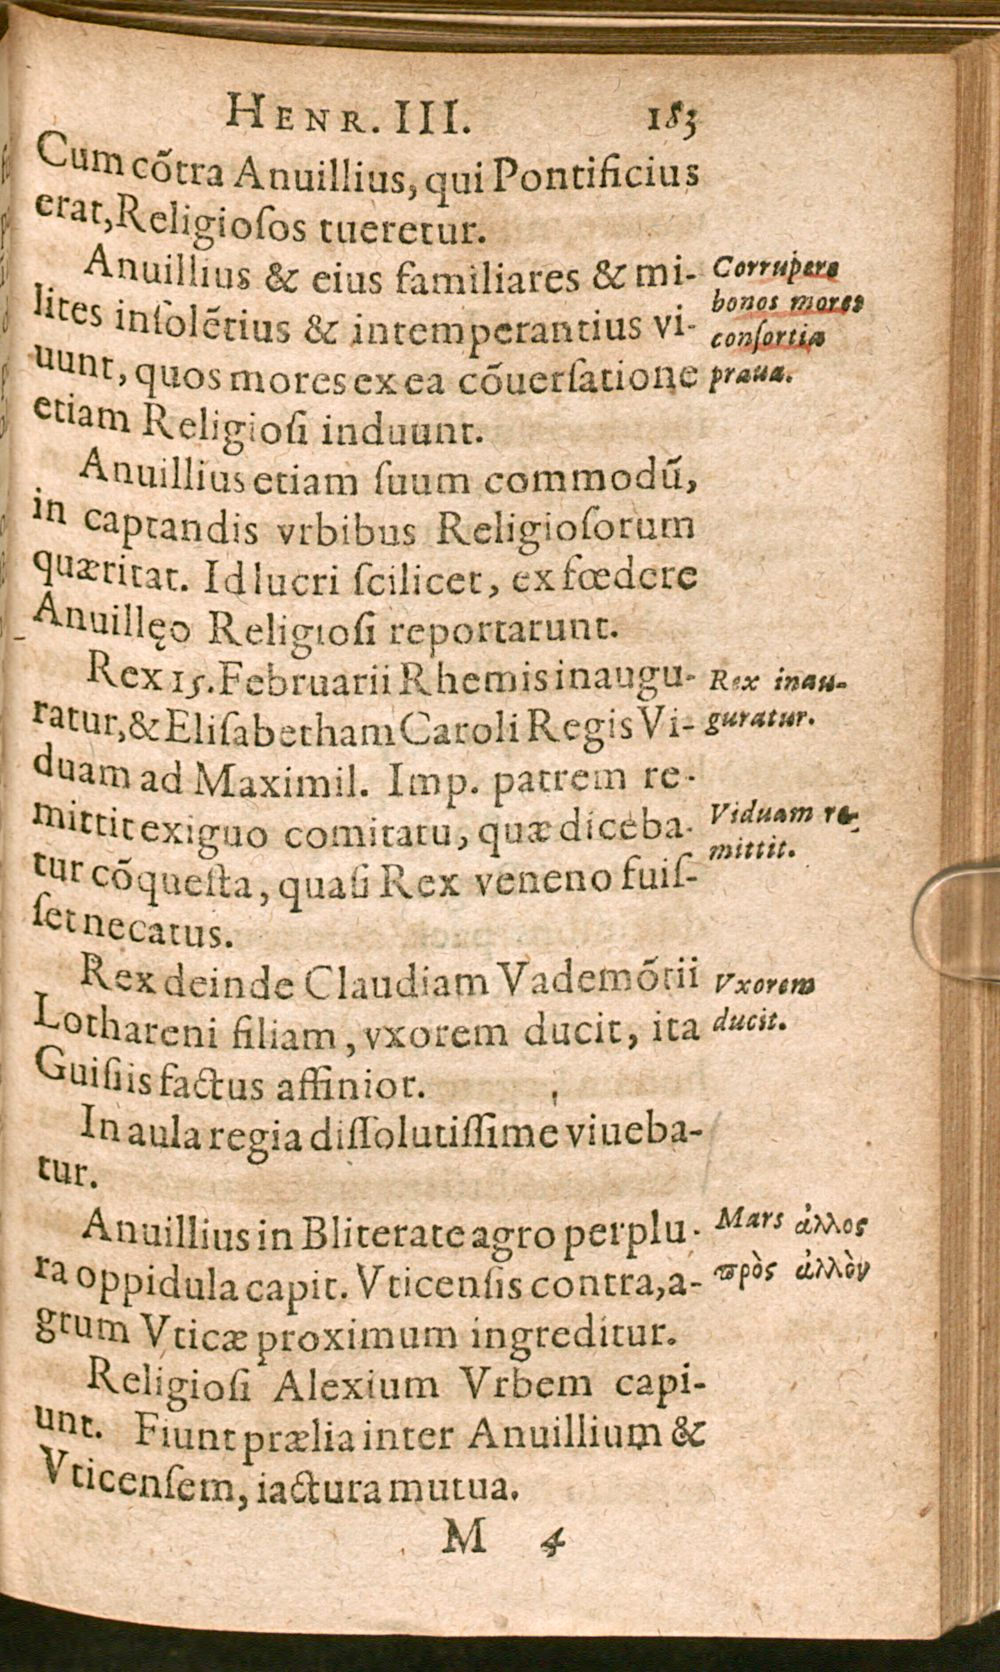 HENR. III. 183
Cum cõtra Anuillius, qui Pontificius
erat, Religioſos tueretur.
Anuillius & eius familiares & mi-
lites inſolẽtius & intemperantius vi-
uunt, quos mores ex ea cõuerſatione
etiam Religioſi induunt.
Corrupere
bonos mores
conſortia
praua.
Anuillius etiam ſuum commodũ,
in captandis vrbibus Religioſorum
quæritat. Id lucri ſcilicet, ex fœdere
Anuillęo Religioſi reportarunt.
Rex 15. Februarii Rhemis inaugu-
ratur, & Eliſabetham Caroli Regis Vi-
duam ad Maximil. Imp. patrem re-
mittit exiguo comitatu, quæ diceba-
tur cõqueſta, quaſi Rex veneno fuiſ-
ſet necatus.
Rex inau-
guratur.
Viduam re-
mittit.
Rex deinde Claudiam Vademõtii
Lothareni filiam, vxorem ducit, ita
Guiſiis factus affinior.
Vxorem
ducit.
In aula regia diſſolutiſſime viueba-
tur.
Anuillius in Bliterate agro perplu-
ra oppidula capit. Vticenſis contra, a-
grum Vticæ proximum ingreditur.
Mars ἀλλος
πρὸς ἀλλὸν
Religioſi Alexium Vrbem capi-
unt. Fiunt prælia inter Anuillium &
Vticenſem, iactura mutua.
M 4